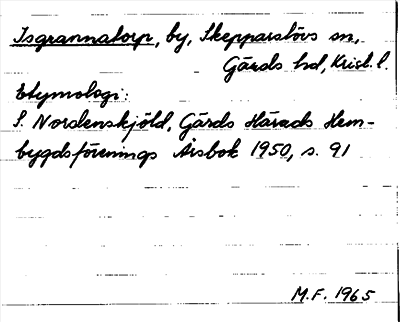 Isgrannatorp, by, Skepparslövs sn,
Gärds hd, Krist. l.
Etymologi:
S. Nordenskjöld, Gärds Härads Hem-
bygdsförenings Årsbok 1950, s. 91
M.F. 1965